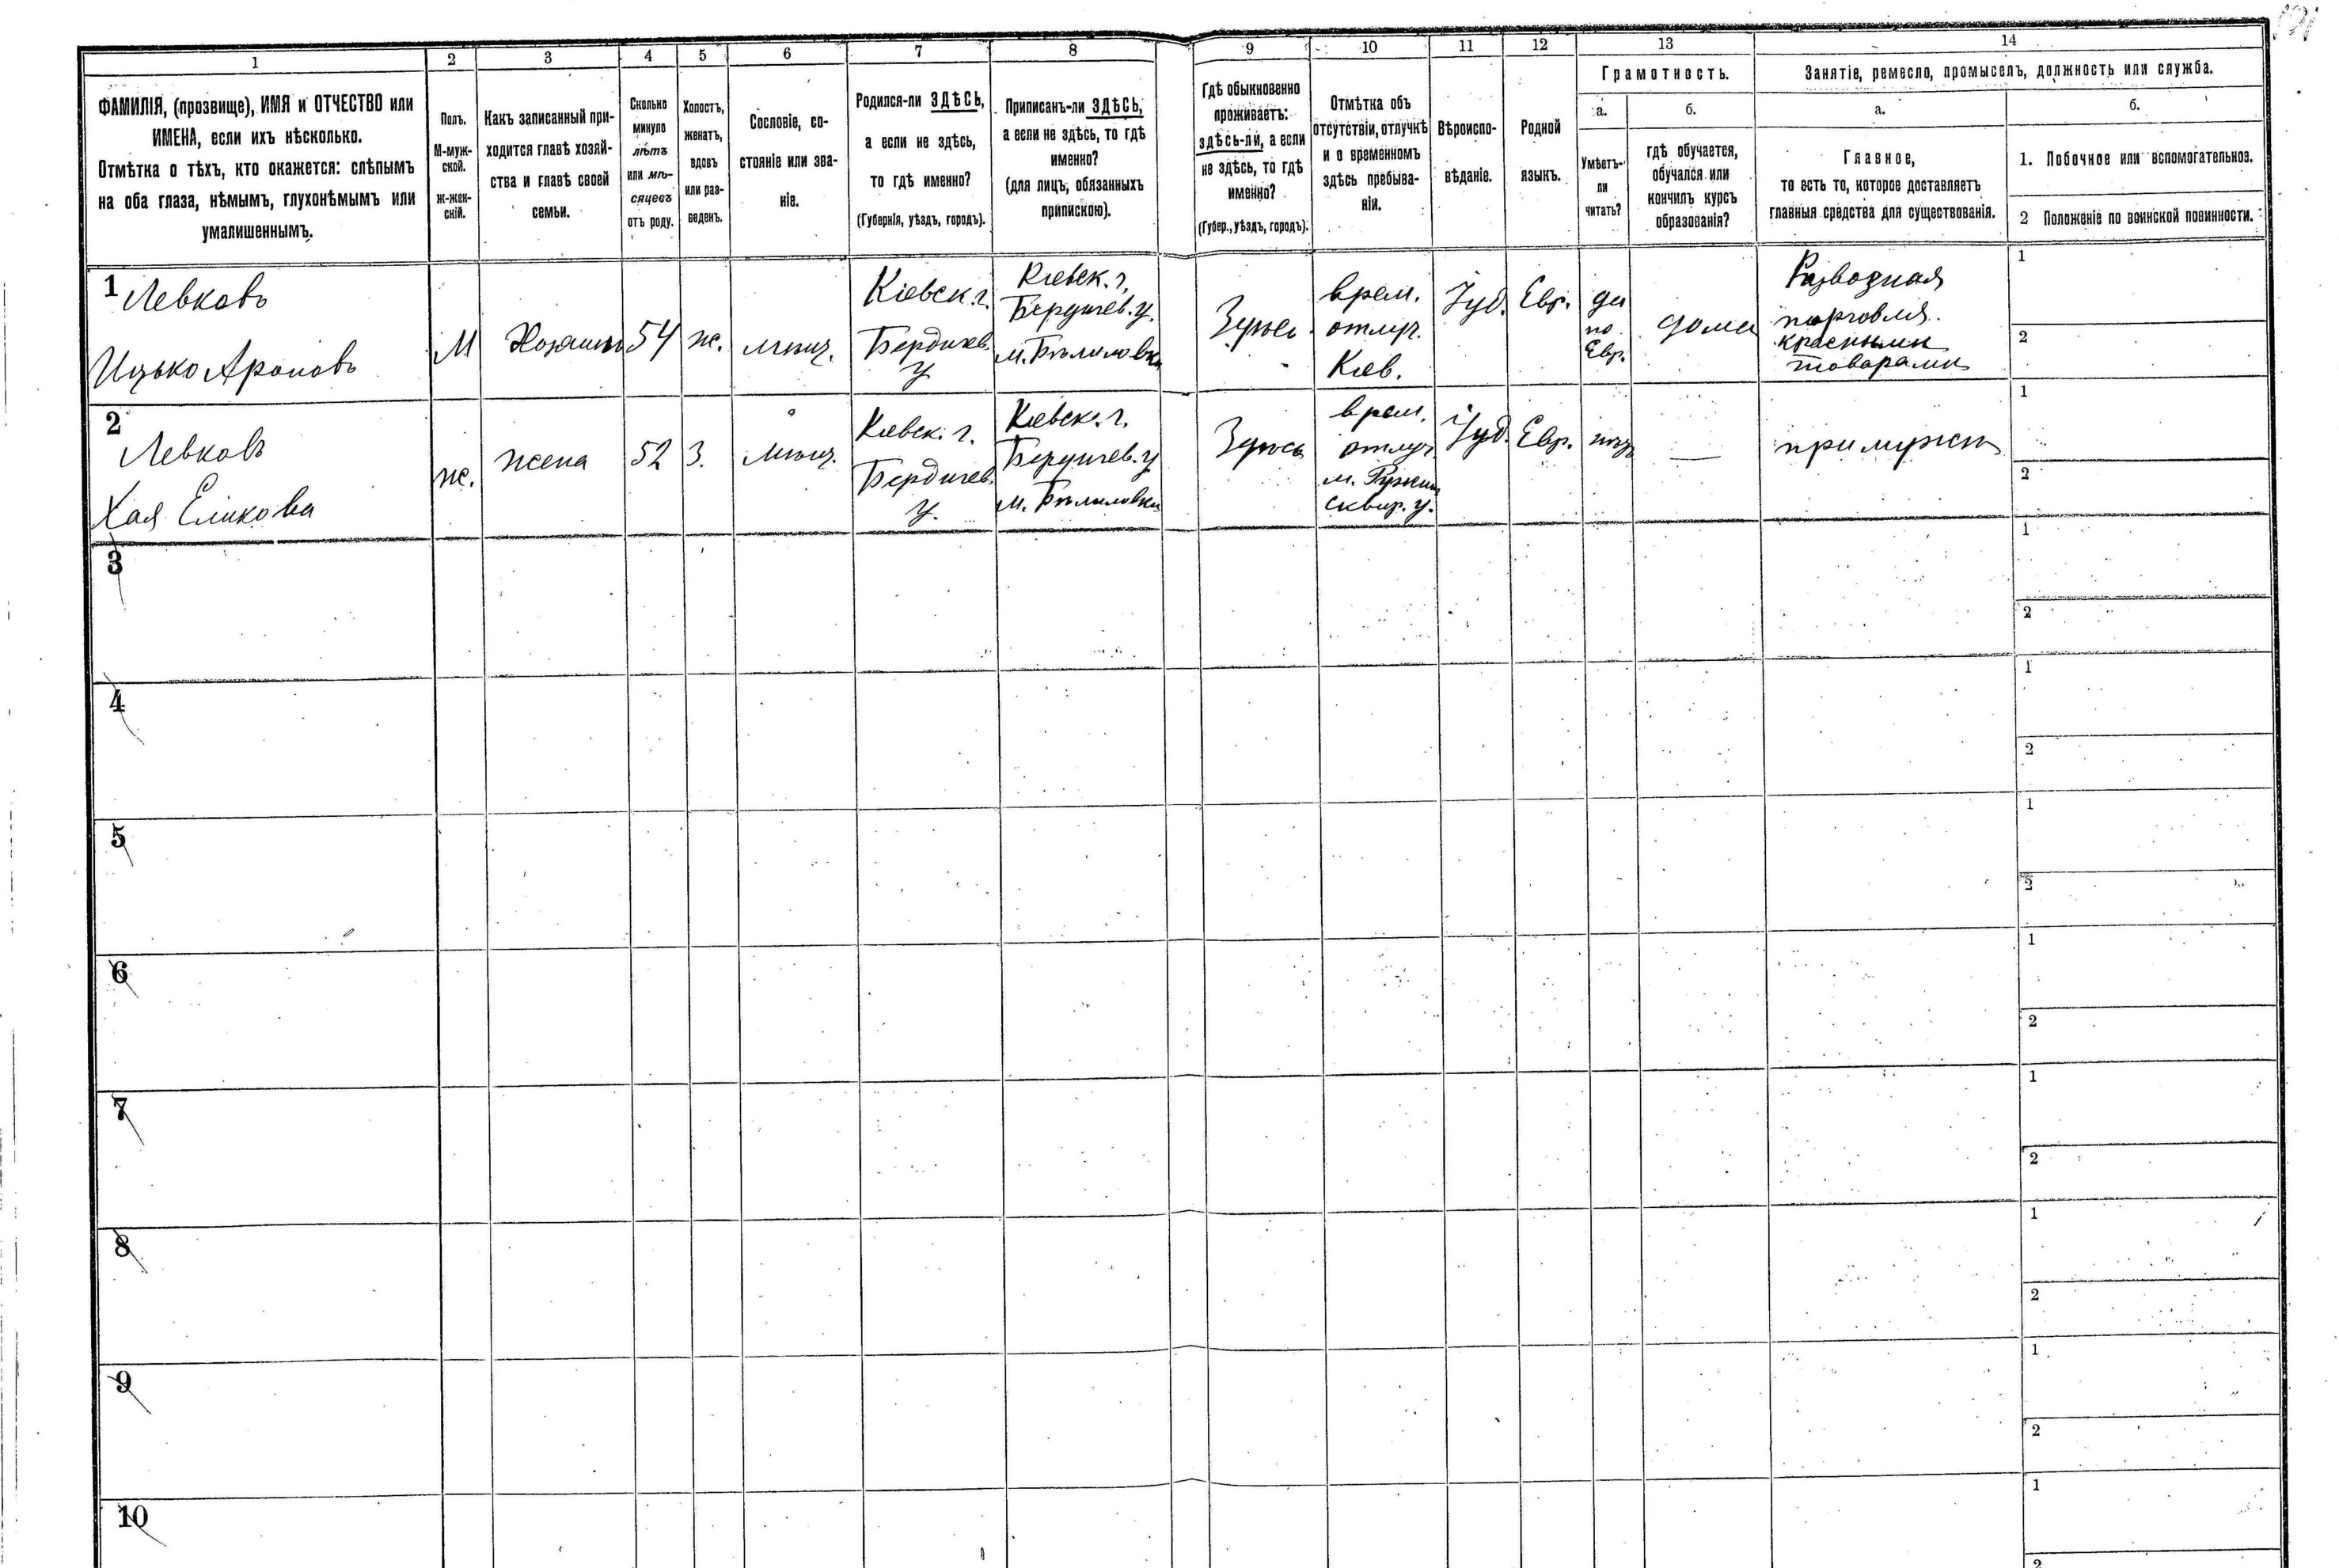 1
2
3
4
5
6
7
8
9
10
11
12
13
14
ФАМИЛІЯ, (прозвище), ИМЯ и ОТЧЕСТВО или
ИМЕНА, если ихъ нѣсколько.
Отмѣтка о тѣхъ, кто окажется: слѣпымъ
на оба глаза, нѣмымъ, глухонѣмымъ или
умалишеннымъ.
Полъ.
М-муж-
ской.
ж-жен-
скій.
Какъ записанный при-
ходится главѣ хозяй-
ства и главѣ своей
семьи.
Сколько
минуло
лѣтъ
или мѣ-
сяцевъ
отъ роду.
Холостъ,
женатъ,
вдовъ
или раз-
веденъ.
Сословіе, со-
стояніе или зва-
ніе.
Родился-ли ЗДѢСЬ,
а если не здѣсь,
то гдѣ именно?
(Губернія, уѣздъ, городъ).
Приписанъ-ли ЗДѢСЬ,
а если не здѣсь, то гдѣ
именно?
(для лицъ, обязанныхъ
припискою).
Гдѣ обыкновенно
проживаетъ:
здѣсь-ли, а если
не здѣсь, то гдѣ
именно?
(Губер., уѣздъ, городъ).
Отмѣтка объ
отсутствіи, отлучкѣ
и о временномъ
здѣсь пребыва-
ніи.
Вѣроиспо-
вѣданіе.
Родной
языкъ.
Грамотность.
а.
Умѣетъ-
ли
читать?
б.
гдѣ обучается,
обучался или
кончилъ курсъ
образованія?
Занятіе, ремесло, промыселъ, должность или служба.
а.
Главное,
то есть то, которое доставляетъ
главныя средства для существованія.
б.
1. Побочное или вспомогательное.
2 Положеніе по воинской повинности.
1
Левковъ
Ицько Ароновъ
М
Хозяинъ
54
ж.
мѣщ.
Кіевск. г.
Бердичев.
у
Кіевск. г.
Бердичев. у.
м. Бѣлиловка
Здѣсь
врем.
отлуч.
Кіев.
Іуд.
Евр.
да
по
Евр.
дома
Развозная
торговля
красными
товарами
1
2
2
Левковъ
Хая Еликова
ж.
жена
52
З.
мѣщ.
Кіевск. г.
Бердичев.
у.
Кіевск. г.
Бердичев. у
м. Бѣлиловка
Здѣсь
врем.
отлуч
м. Ружин
сквир. у.
Іуд.
Евр.
нѣтъ
—
при мужѣ
1
2
3
1
2
4
1
2
5
1
2
6
1
2
7
1
2
8
1
2
9
1
2
10
1
2